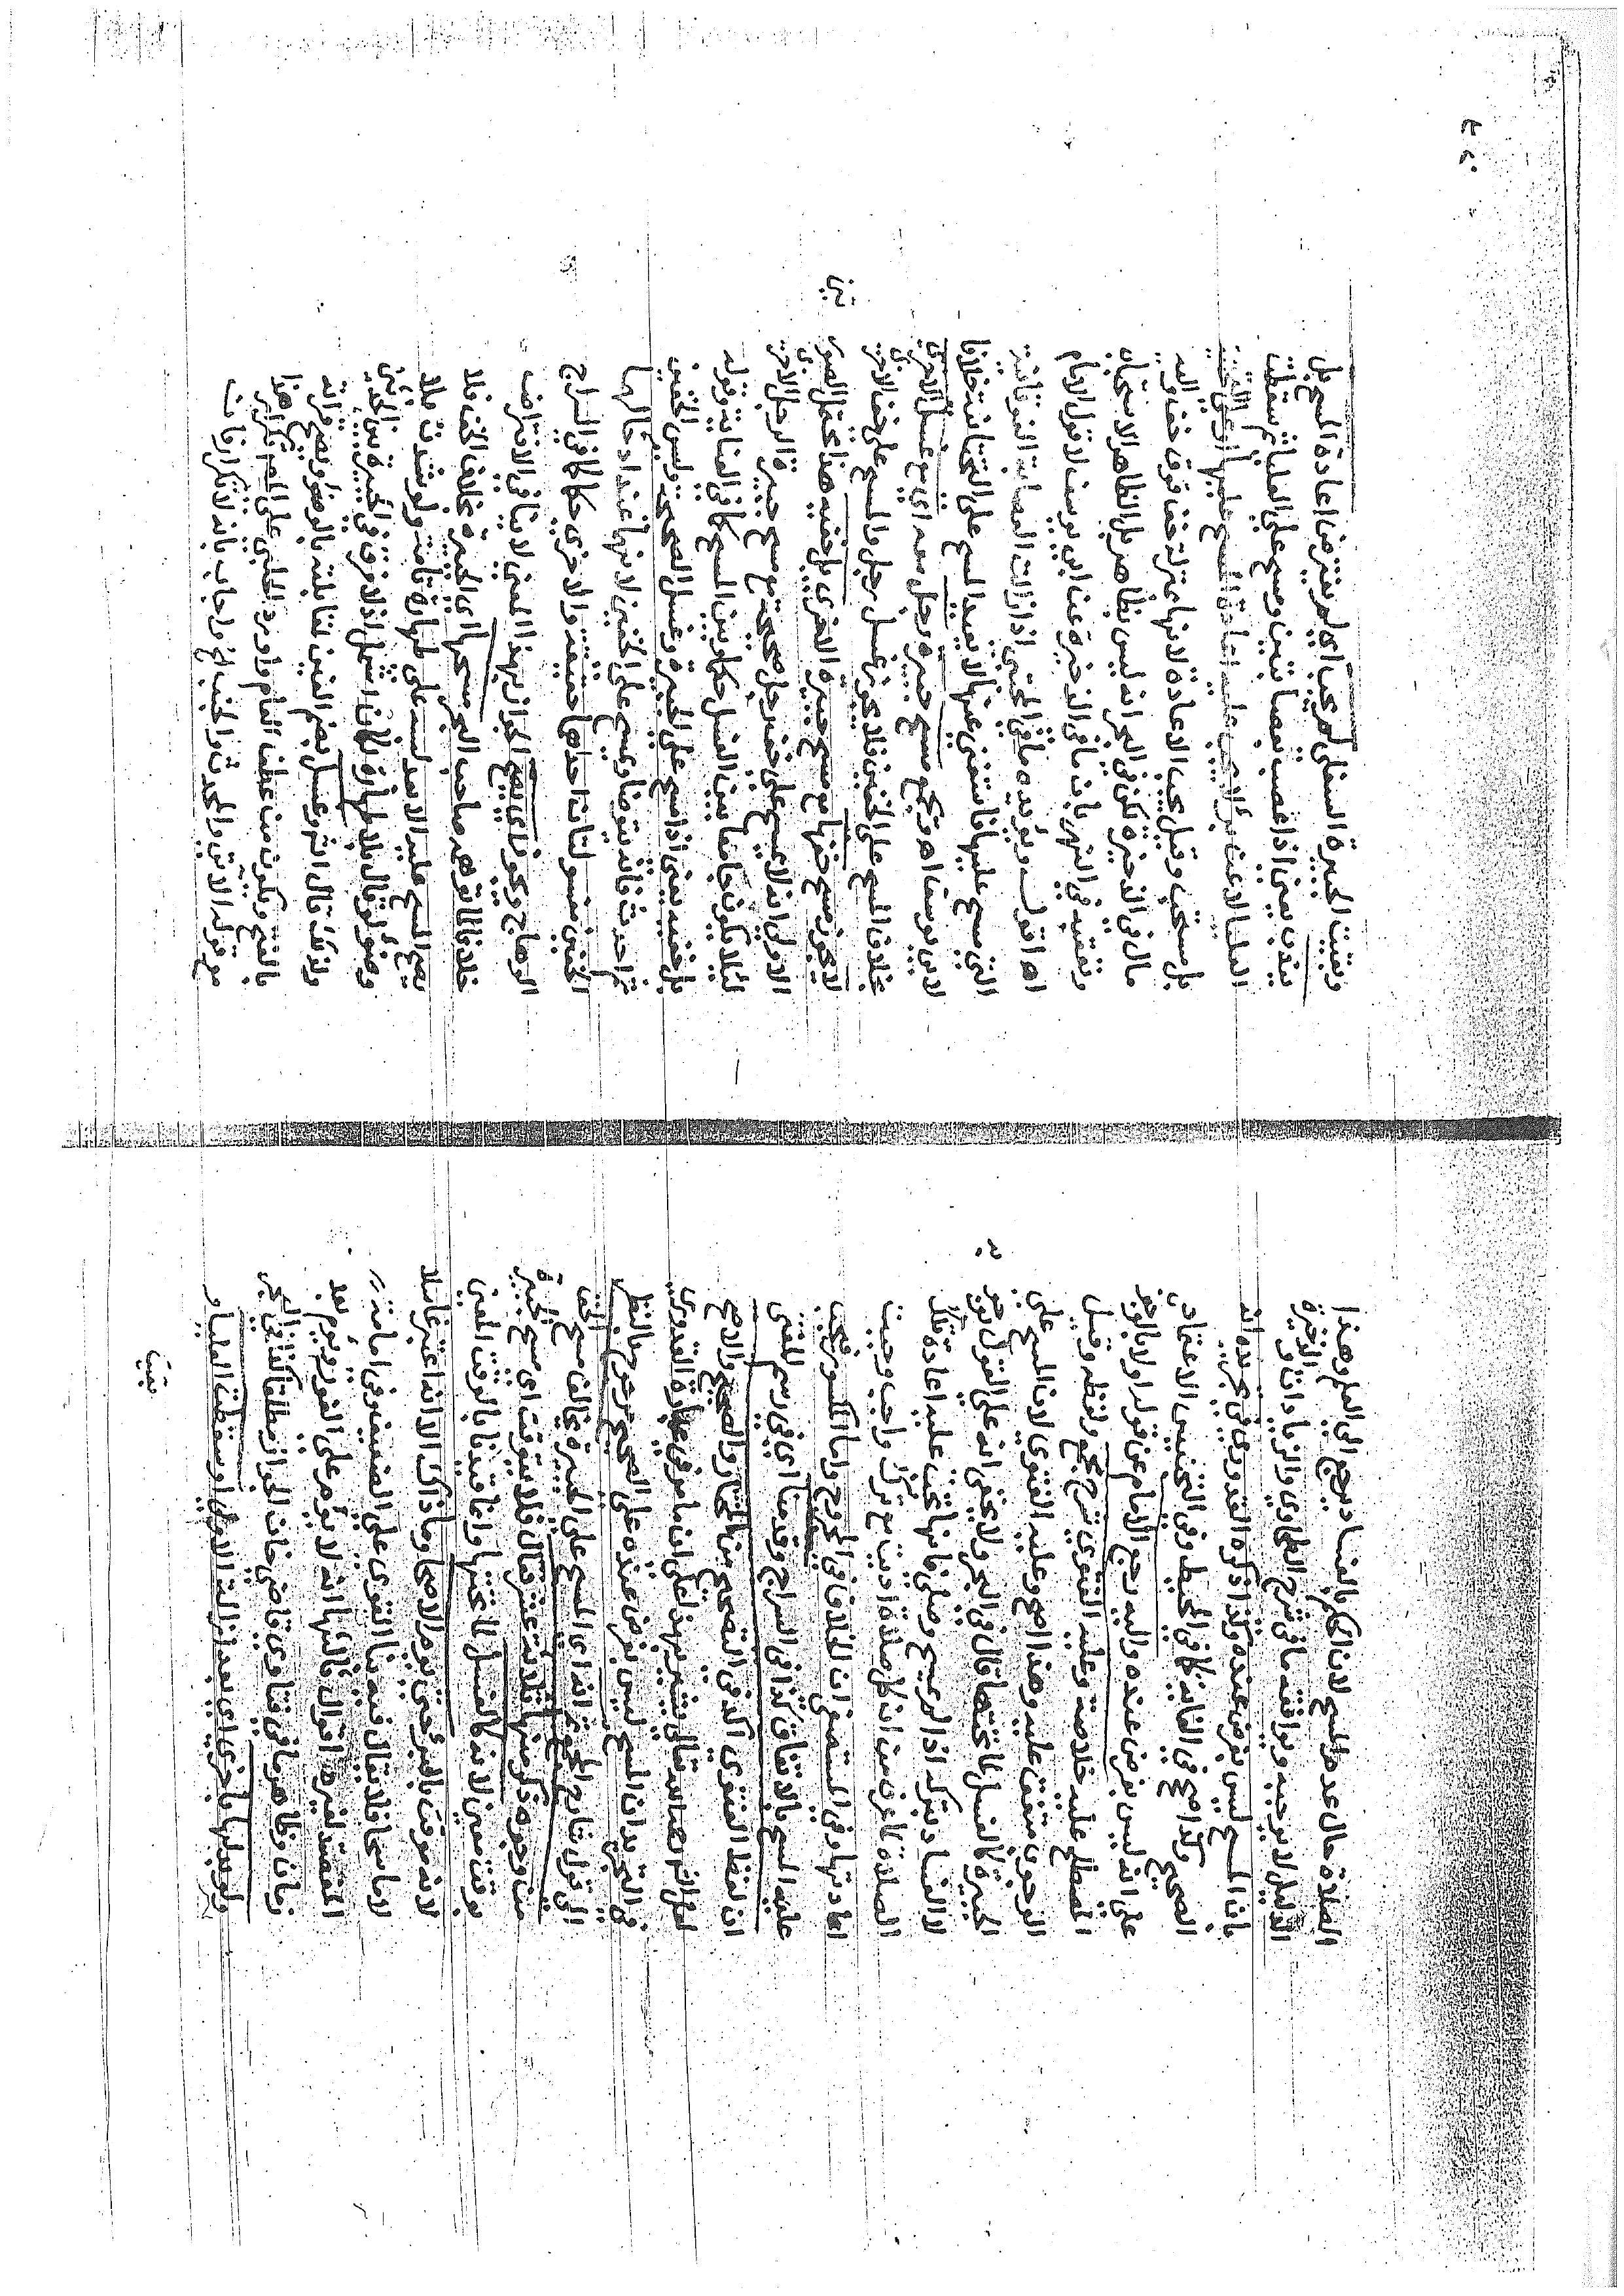 الصلاة حال عدم المسح لان الحكم بالفساد يرجع الى العلم وهذا
الدليل لا يوجبه ويوافقه ما في شرح الطحاوي والزيادات والذخيرة
بان المسح ليس بفرض عنده وكذا ذكره القدوري في تجريده انه
الصحيح وكذا صحح في الغاية كما في المحيط وفي التجنيس الاعتماد
على انه ليس بفرض عنده واليه رجع الامام عن قوله اولا بالوجو
المصطلح عليه خلاصة وعليه الفتوى شرح مجمع ولفظه وقيل
الوجوب متفق عليه وهذا اصح وعليه الفتوى لان المسح على
الجبيرة كالغسل لما تحتها قال في البحر ولا يخفى انه على القول بوجو
لا الفساد بتركه اذا لم يمسح وصلى فانها تجب عليه اعادة تلك
الصلاة لما عرف من ان كل صلاة اديت مع ترك واجب وجبت
اعادتها وفي المستصفى ان الخلاف في المجروح واما المكسور فيجب
عليه المسح بالاتفاق كذا في السراج وقدمنا اي في رسم المفتي
ان لفظ الفتوى اكد في التصحيح من المختار والصحيح والاصح
تعالى يشير بهذا على ان ما مر في عبارة القدوري
في التجريد ان المسح ليس بفرض عنده على الصحيح مرجوح بالنظر
الى قول شارح المجمع ثم انه اي المسح على الجبيرة يخالف مسح الخف
من وجوه ذكر منها ثلاثة عشر فقال فلا يتوقت اي مسح الجبيرة
بوقت معين لانه كالغسل لما تحتها وانما قيدنا بالوقت المعين
لانه موقت بالبرء حتى يوم الاصحا وما ذاك الا انه اعتبر غاسلا
لا ماسحا فلا يقال فيه بنا القوى على الضعيف وفي امامة
لغيره اقول انه لا يؤم على القول
زمان وظاهر ما في فتاوى قاضي خان الجواز مطلقا كذا في البحر
ولو بدلها باخرى اي بعد ازالة الاولى او سقطت العليا و
وبقيت
وبقيت الجبيرة السفلى لم يجب اي لم يفترض اعادة المسح بل
يندب يعني اذا عصب بعصابتين ومسح على العليا ثم سقطت
العليا لا عن برء لا يجب عليه اعادة المسح عليها
بل يستحب وقيل يجب الاعادة لانها بمنزلة خف فوق خف واليه
مال في الذخيرة لكن في البحر انه ليس بظاهر بل الظاهر الاستحباب
وتعقبه في النهر بان ما في الذخيرة عن ابي يوسف لا قول الامام
اه اقول ويؤيده ما في المجتبى اذا زالت العصابة الفوقانية
التي مسح عليها فاستغنى عنها لا يعيد المسح على التحتانية خلافا
لابي يوسف اه ويجمع مسح جبيرة رجل معه اي مع غسل الاخرى
بخلاف المسح على الخفين فلا يجوز غسل رجل والمسح على خف الاخرى
لا يجوز مسح خفها مع مسح جبيرة الاخرى بل خفيه هذا
الاولى انه لا يمسح على خف رجل صحيحة مع مسح جبيرة الرجل الاخرى
لئلا يكون جامعا بين الغسل حكما وبين المسح كما في الغاية وقوله
بل خفيه يعني اذا مسح على الجبيرة وغسل الصحيحة ولبس الخفين
ثم احدث فانه يتوضأ ويمسح على الخفين لانهما عند ادخالهما
الخفين مغسولتان احداهما حقيقة والاخرى حكما كما في السراج
الوهاج ويجوز اي يصح الجواز بهذا المعنى لا ينافي الافتراض
خلافا لما توهمه صاحب البحر مسحها اي الجبيرة بخلاف الخف فلا
يصح المسح عليه الا بعد لبسه على طهارة تامة ولو شدت بلا
وضوء لو قال بلا طهارة لكان اشمل اذ لا فرق في الجبيرة بين الحدثين
ولذلك قال الشر وغسل بضم الغين لمقابلته بالوضوء ويصح قراءته
بالفتح ويكون من عطف العام
مع قوله الاتي والمحدث والجنب الخ واجاب بانه لا تكرار